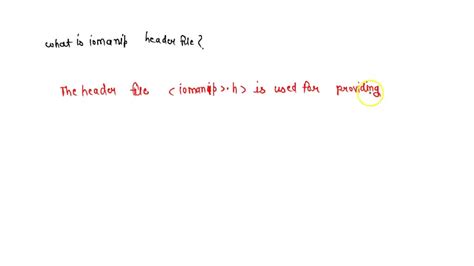 what is iomanip header file?
The header file <iomanip>.h> is used for providing